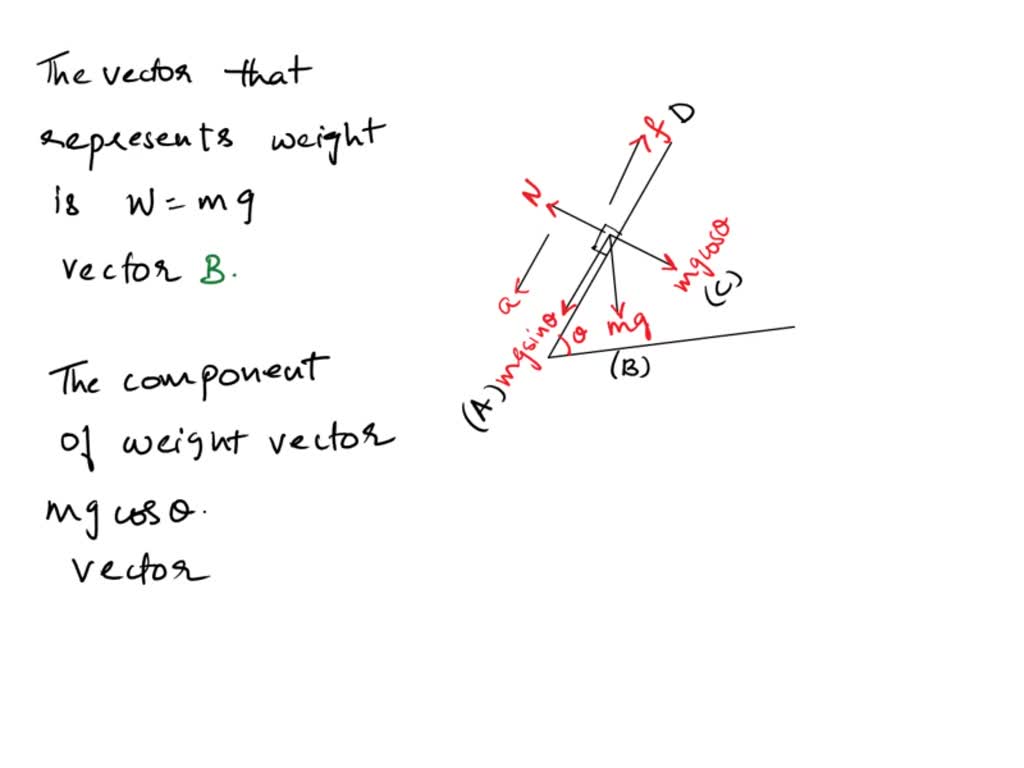 The vector that
represents weight
is W = mg
vector B.
The component
of weight vector
mg cosθ.
vector
f D
N
mg cosθ
(C)
a
mg sinθ
θ mg
(A)
(B)